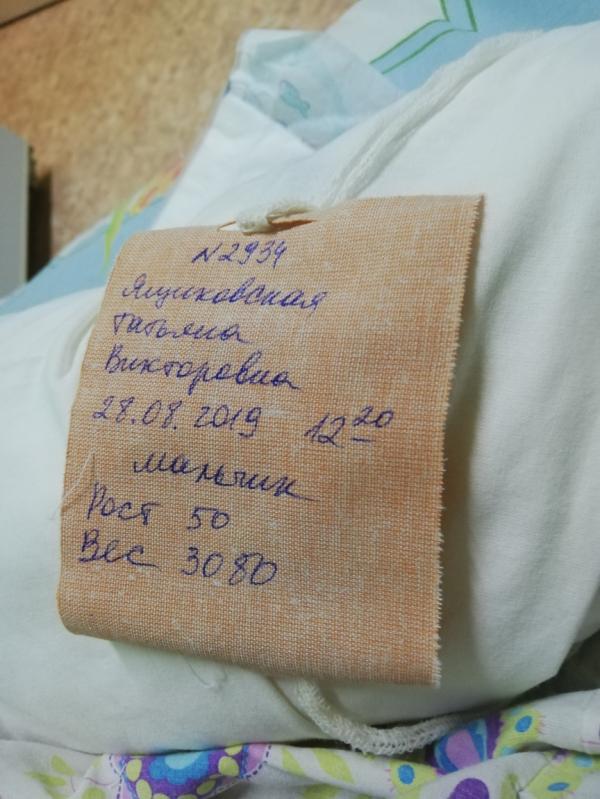 N2934
Ящиковская
Татьяна
Викторовна
28.08.2019 12 20
мальчик
Рост 50
Вес 3080